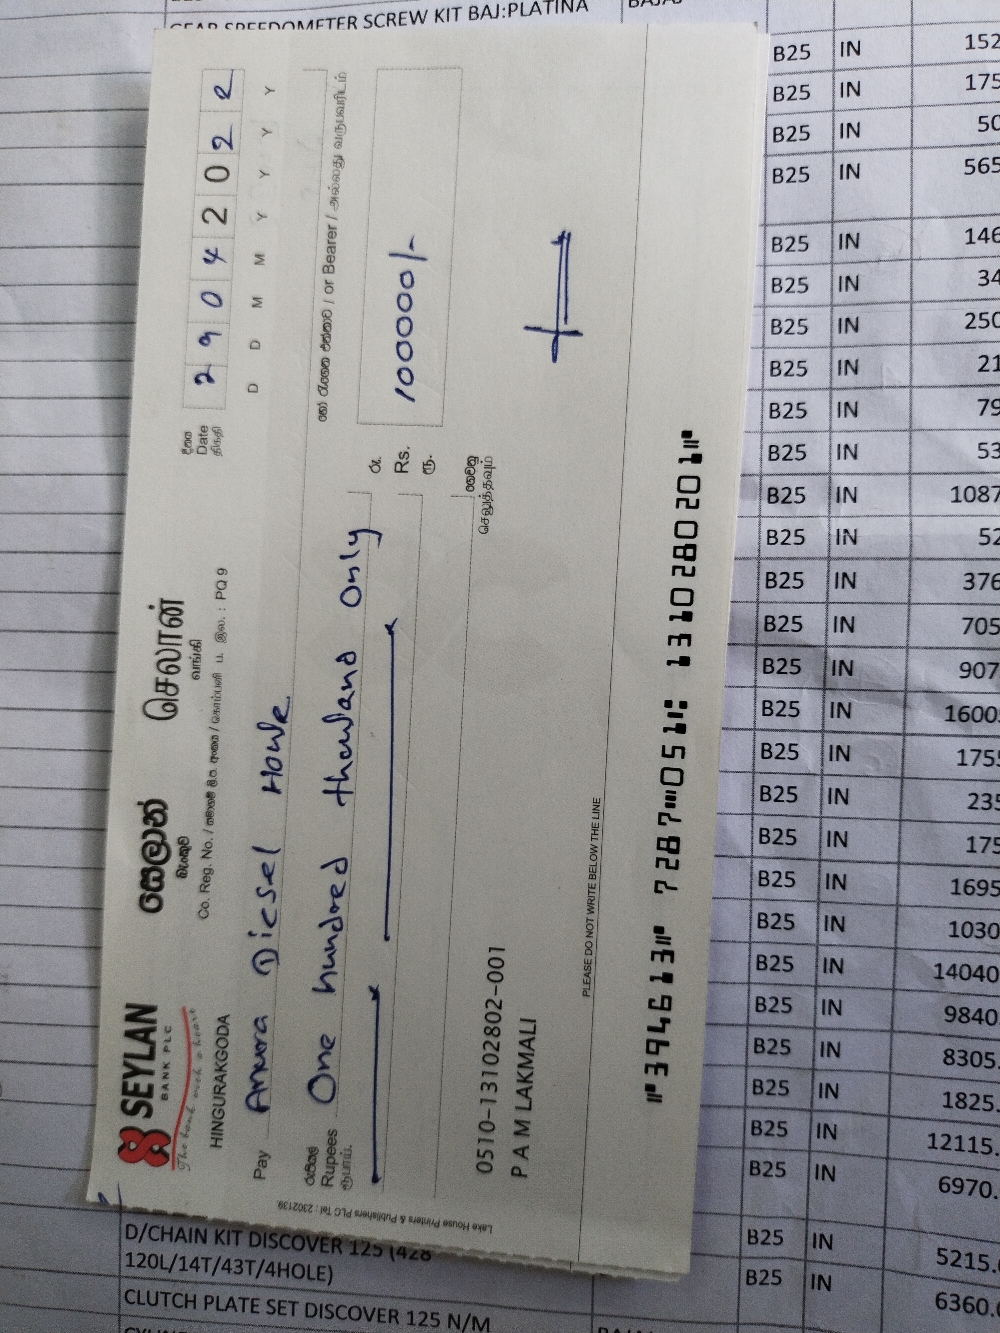 GEAR SPEEDOMETER SCREW KIT BAJ:PLATINA
SEYLAN
BANK PLC
The bank with a heart
HINGURAKGODA
සෙලාන්
බැංකුව
செலான்
வங்கி
Co. Reg. No. / PQ 9
දිනය
Date
திகதி
2 9 0 4 2 0 2 2
D D M M Y Y Y Y
Pay Anura Diesel House
හෝ රැගෙන එන්නාට / or Bearer / அல்லது வருபவரிடம்
රුපියල්
Rupees
ரூபாய்
One hundred thousand only
රු.
Rs.
ரூ.
100000/-
ගෙවනු
செலுத்தவும்
0510-13102802-001
P A M LAKMALI
PLEASE DO NOT WRITE BELOW THE LINE
⑈394613⑈ 7287⑉051⑆ 131028020 1⑈
Lake House Printers & Publishers PLC Tel : 2302139
B25 IN 152
B25 IN 175
B25 IN 50
B25 IN 565
B25 IN 146
B25 IN 34
B25 IN 250
B25 IN 21
B25 IN 79
B25 IN 53
B25 IN 1087
B25 IN 52
B25 IN 376
B25 IN 705
B25 IN 907
B25 IN 1600
B25 IN 1755
B25 IN 235
B25 IN 175
B25 IN 1695
B25 IN 1030
B25 IN 14040
B25 IN 9840
B25 IN 8305.
B25 IN 1825.
B25 IN 12115.
B25 IN 6970.
D/CHAIN KIT DISCOVER 125 (428 B25 IN 5215.
120L/14T/43T/4HOLE)
CLUTCH PLATE SET DISCOVER 125 N/M B25 IN 6360.